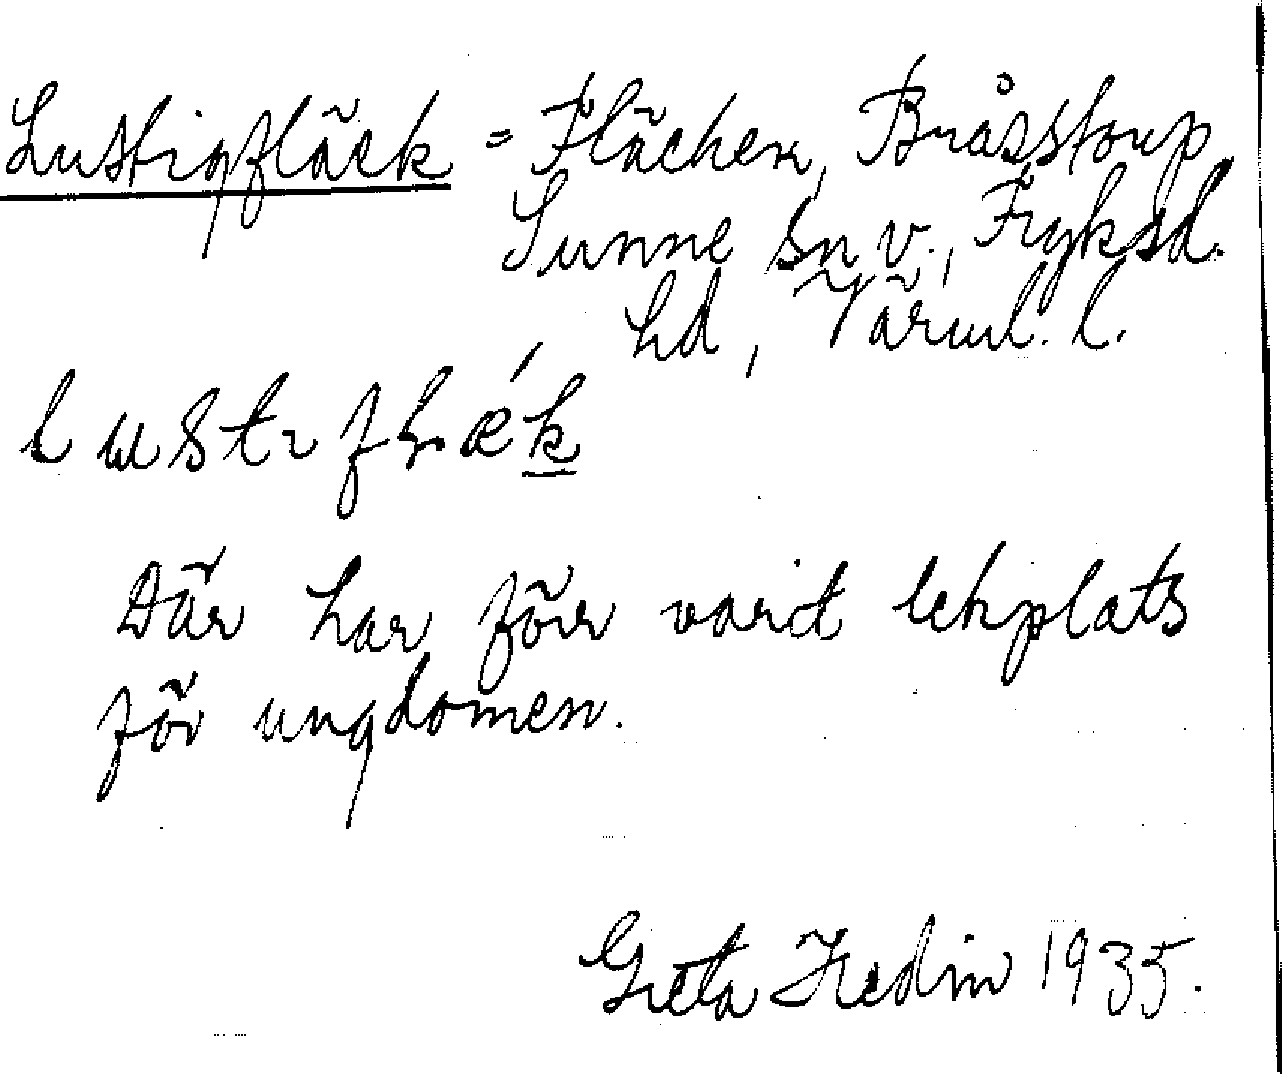 Lustigfläck = Fläcken, Bråstorp,
Sunne sn v., Fryksd.
hd, Värml. l.
Där har förr varit lekplats
för ungdomen.
Greta Hedin 1935.